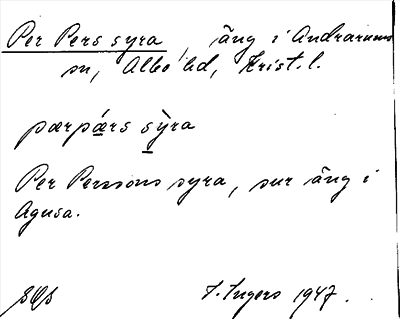 Per Pers syra, äng i Andrarums
sn, Albo hd, Krist. l.
pærpæ̀rs sỳra
Per Perssons syra, sur äng i
Agusa.
I. Ingers 1947.